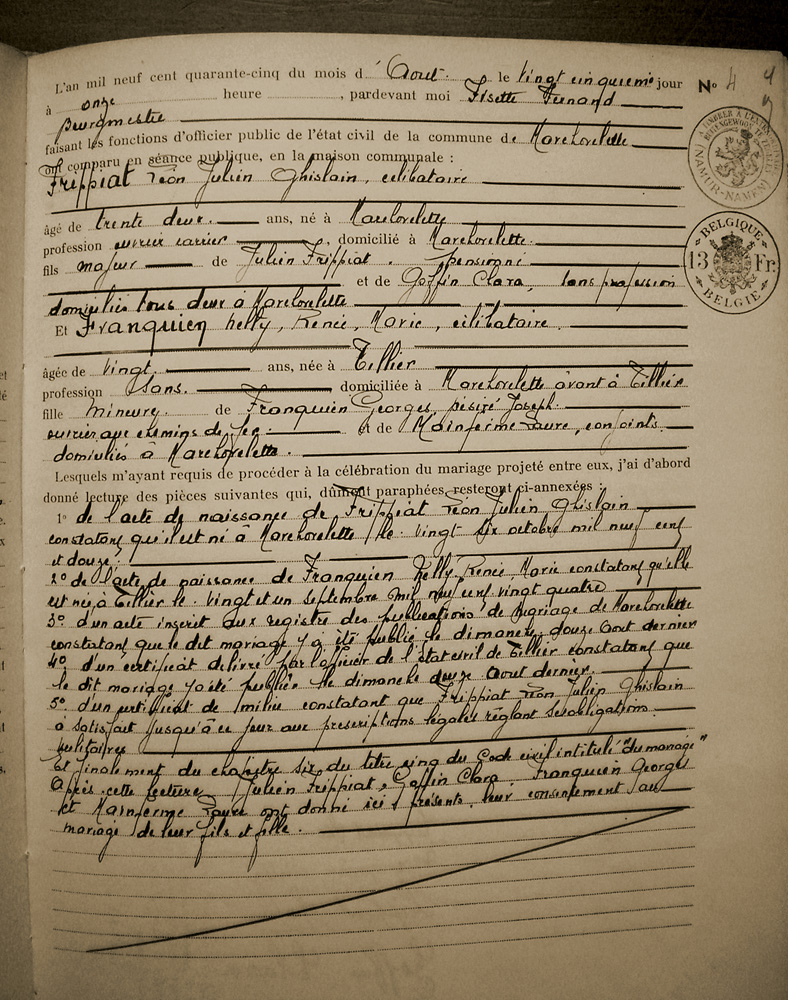 L'an mil neuf cent quarante-cinq du mois d' Aout le vingt cinquieme jour
N° 4
à onze heure , pardevant moi Lisette Fernand
bourgmestre
faisant les fonctions d'officier public de l'état civil de la commune de Marchovelette
ont comparu en séance publique, en la maison communale :
Frippiat Léon Julien Ghislain, célibataire
âgé de trente deux ans, né à Marchovelette
profession ouvrier carrier , domicilié à Marchovelette
fils majeur de Julien Frippiat, pensionné
et de Goffin Clara, sans profession
domiciliés tous deux à Marchovelette
Et Franquien Nelly, Renée, Marie, célibataire.
âgée de vingt ans, née à Tillier
profession Sans. domiciliée à Marchovelette avant à Tillier
fille mineure de Franquien Georges, Désiré Joseph.
ouvrier aux chemins de fer. et de Mainferme Laure, conjoints
domiciliés à Marchovelette.
Lesquels m'ayant requis de procéder à la célébration du mariage projeté entre eux, j'ai d'abord
donné lecture des pièces suivantes qui, dûment paraphées, resteront ci-annexées :
1° de l'acte de naissance de Frippiat Léon Julien Ghislain
constatant qu'il est né à Marchovelette le vingt six octobre mil neuf cent
et douze.
2° de l'acte de naissance de Franquien Nelly, Renée, Marie constatant qu'elle
est née à Tillier le vingt et un septembre mil neuf cent vingt quatre
3° d'un acte inscrit aux registre des publications de mariage de Marchovelette
constatant que le dit mariage y a été publié le dimanche douze Aout dernier
4° d'un certificat délivré par l'officier de l'état civil de Tillier constatant que
le dit mariage y a été publié le dimanche douze Aout dernier.
5° d'un certificat de milice constatant que Frippiat Léon Julien Ghislain
a satisfait jusqu'à ce jour aux prescriptions légales réglant ses obligations
militaires
Et finalement du chapitre six du titre cinq du Code civil intitulé "du mariage"
Après cette lecture, Julien Frippiat, Goffin Clara, Franquien Georges
et Mainferme Laure ont donné ici présents, leur consentement au
mariage de leur fils et fille.
NAMUR-NAMEN
BELGIQUE
13 Fr.
BELGIE